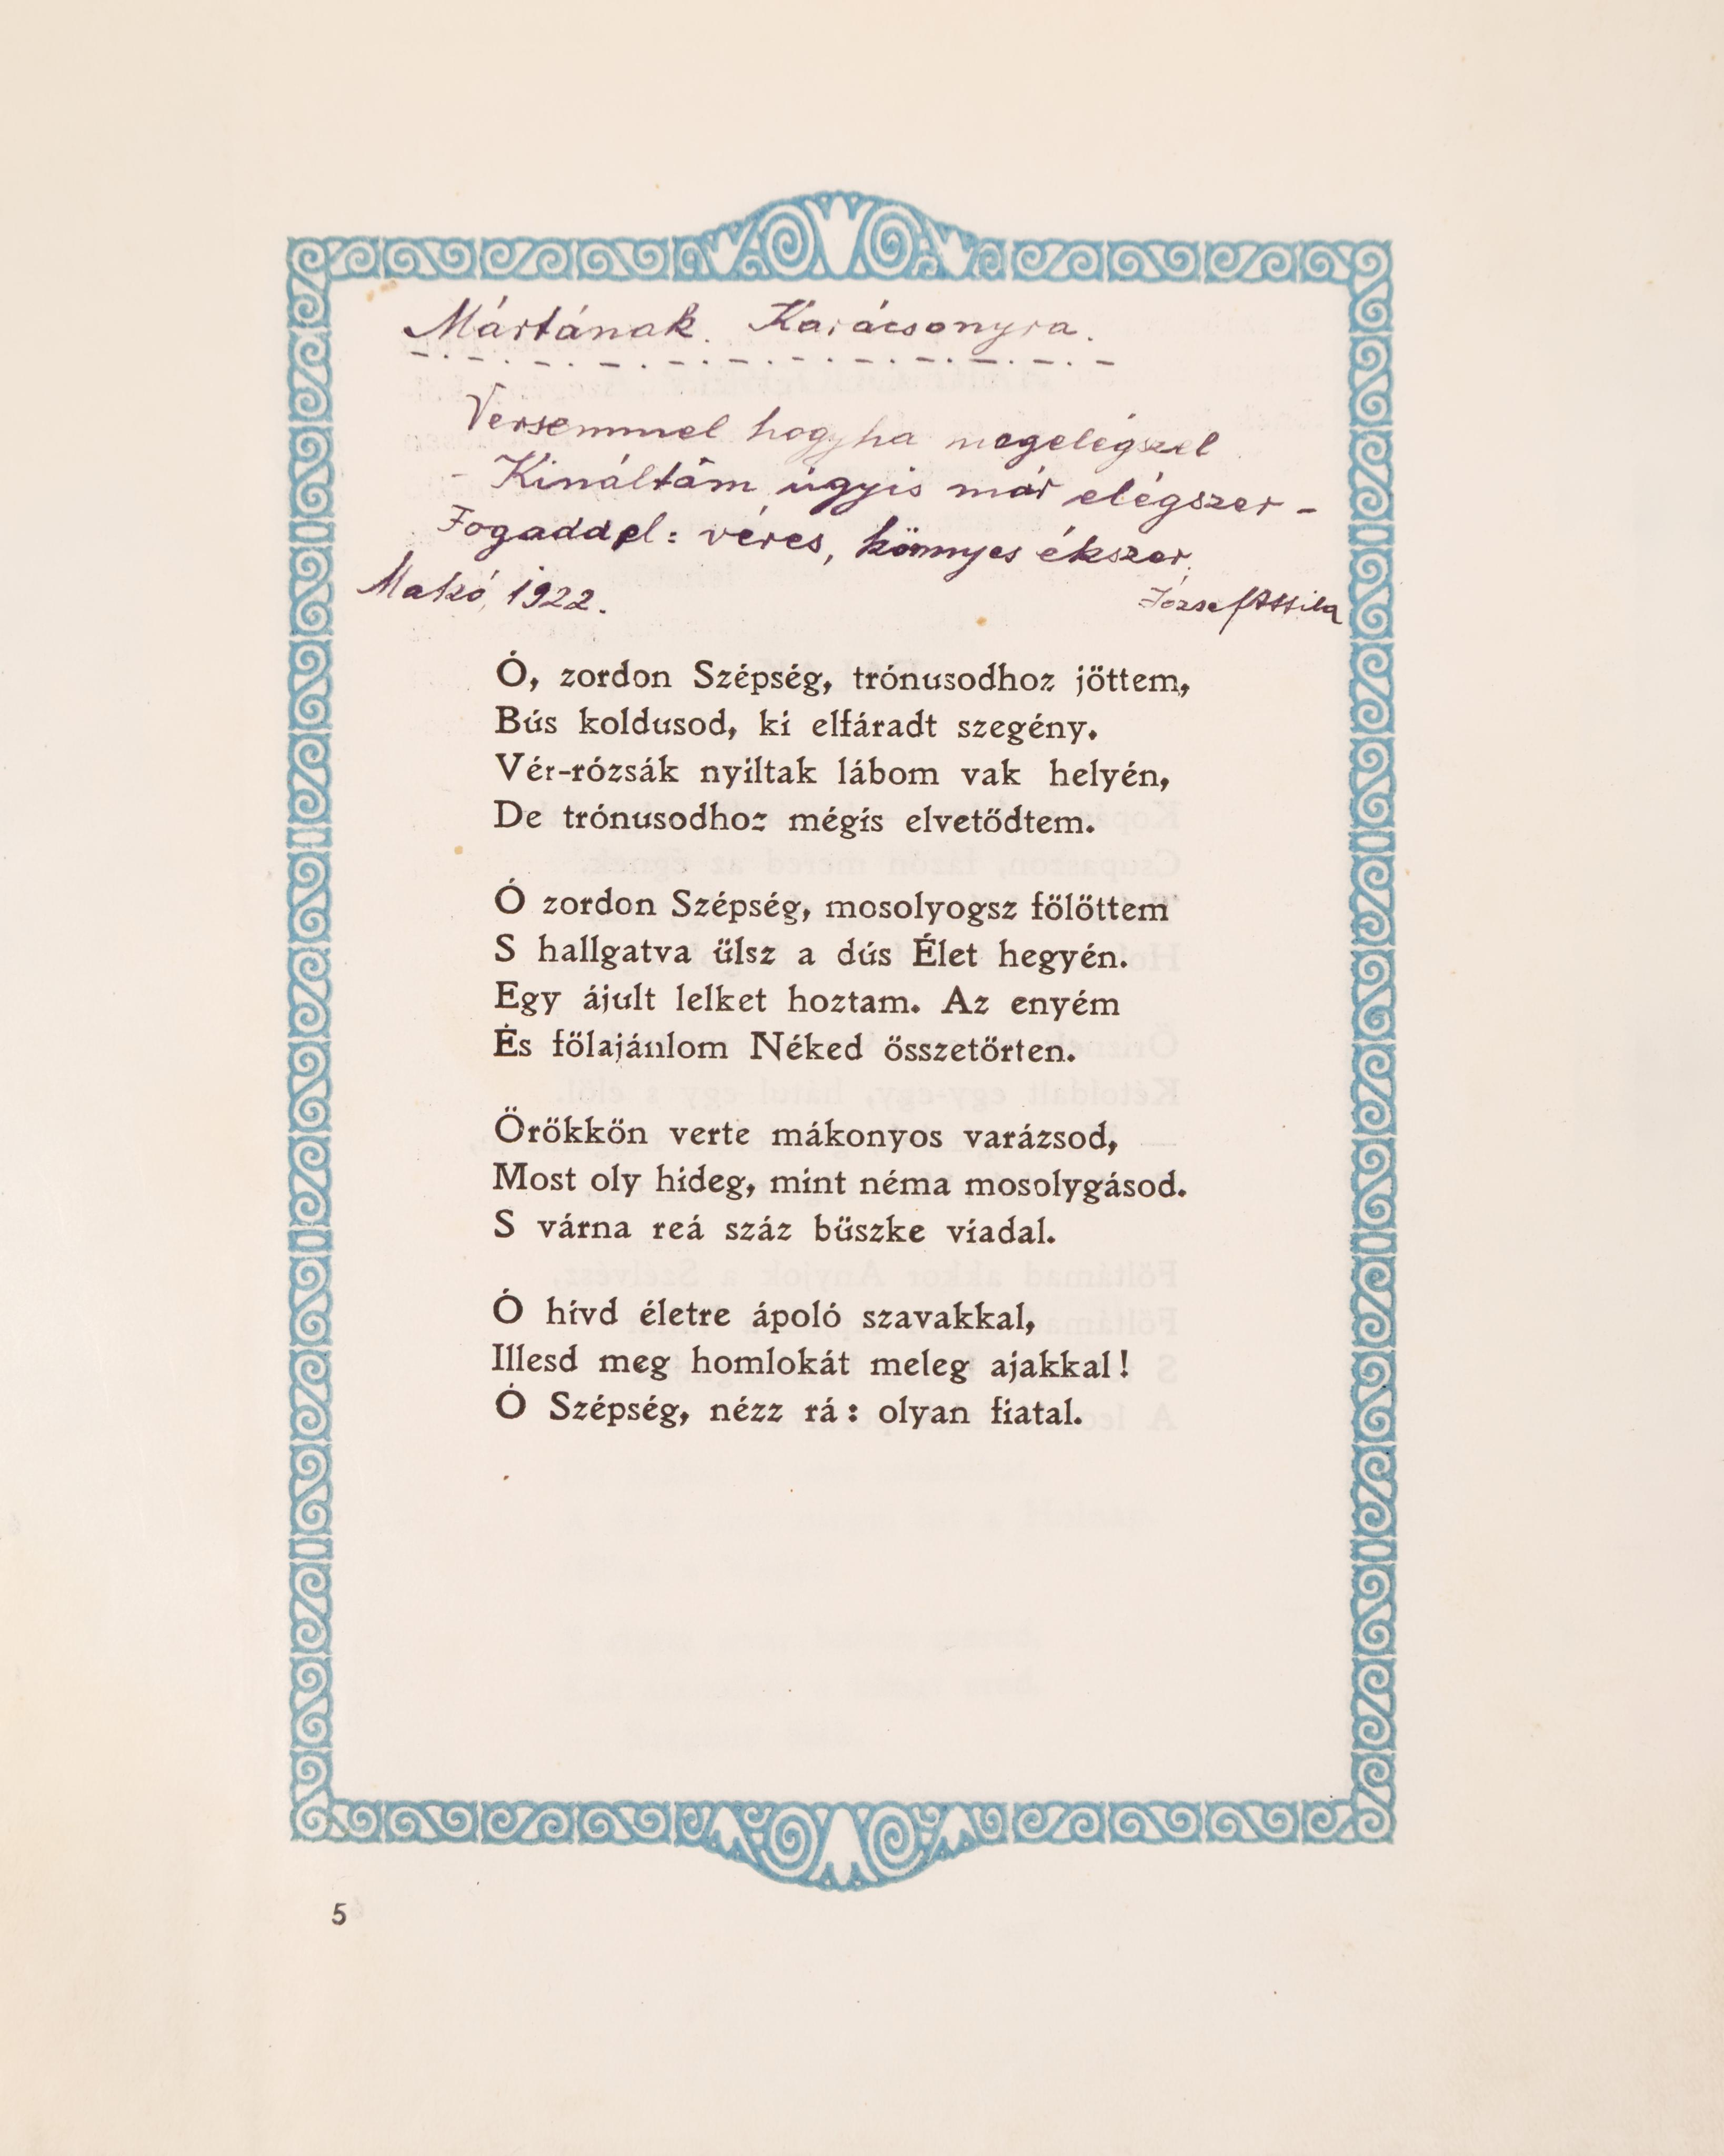 Mártának. Karácsonyra.
Versemmel hogyha megelégszel
- Kináltam úgyis már elégszer -
Fogadd el: véres, könnyes ékszer.
Makó, 1922.
József Attila
Ó, zordon Szépség, trónusodhoz jöttem,
Bús koldusod, ki elfáradt szegény.
Vér-rózsák nyiltak lábom vak helyén,
De trónusodhoz mégis elvetődtem.
Ó zordon Szépség, mosolyogsz fölöttem
S hallgatva ülsz a dús Élet hegyén.
Egy ájult lelket hoztam. Az enyém
És fölajánlom Néked összetörten.
Örökkön verte mákonyos varázsod,
Most oly hideg, mint néma mosolygásod.
S várna reá száz büszke viadal.
Ó hívd életre ápoló szavakkal,
Illesd meg homlokát meleg ajakkal!
Ó Szépség, nézz rá: olyan fiatal.
5